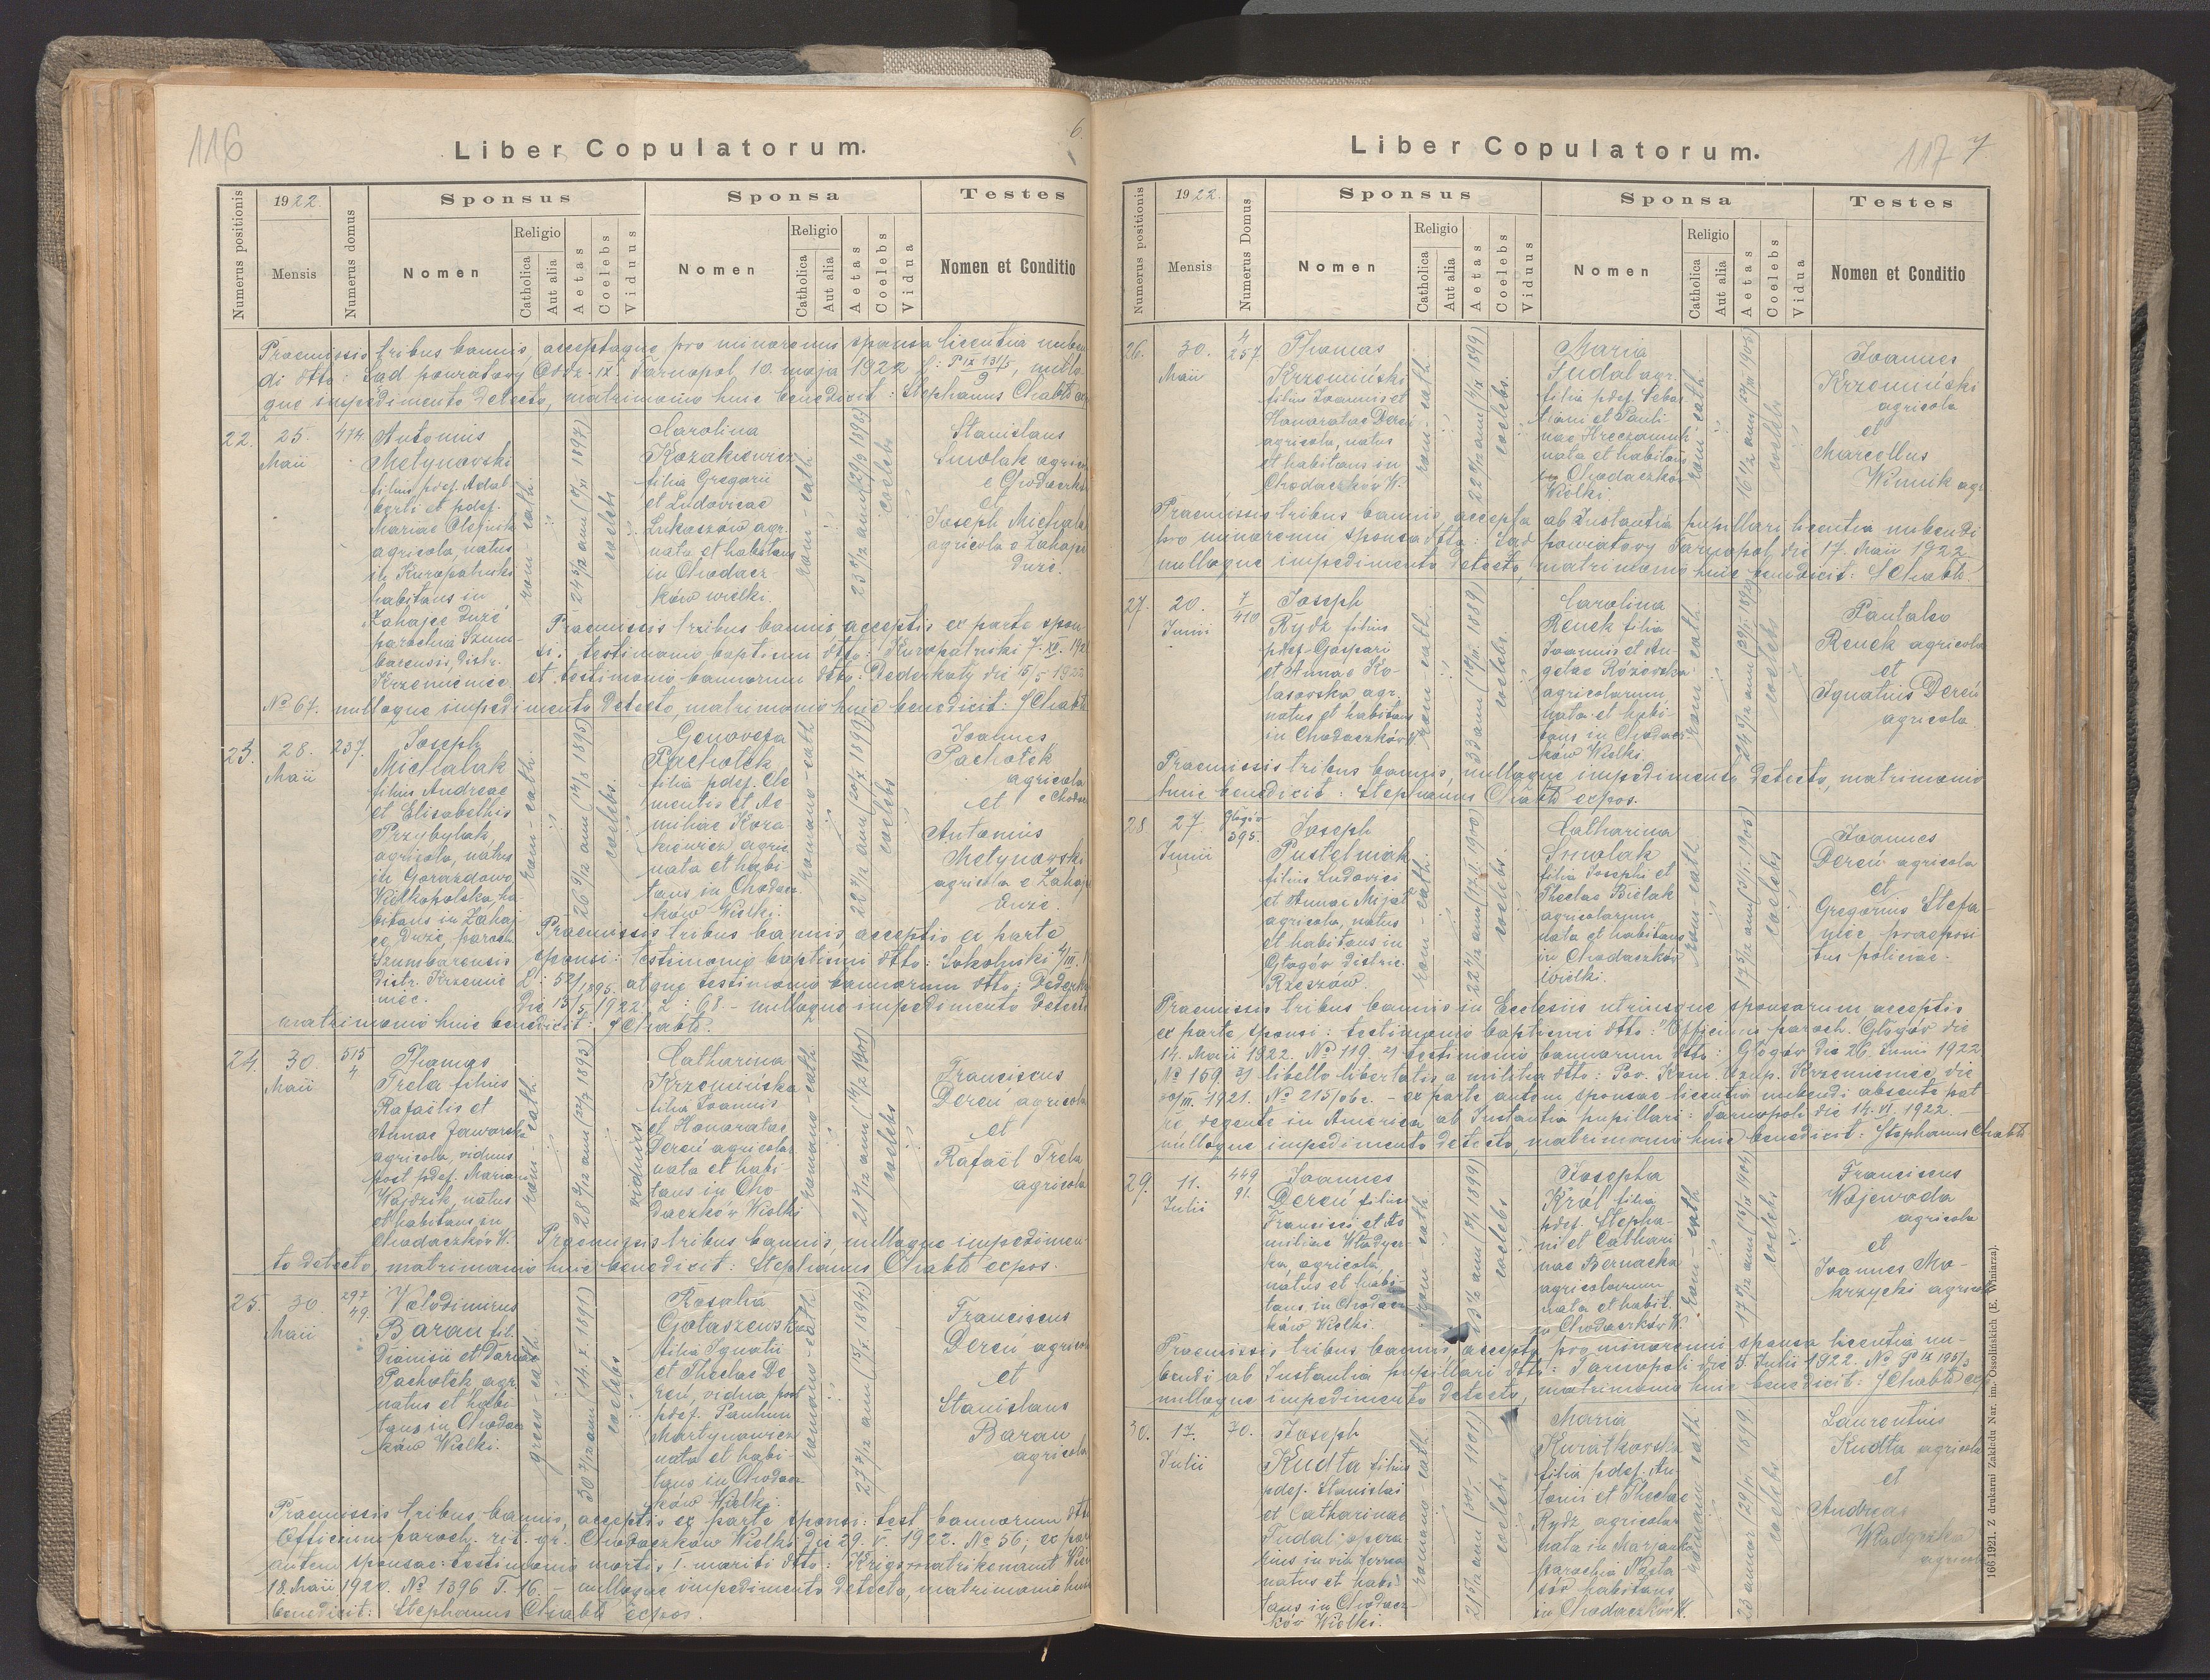 116
6
Liber Copulatorum.
Numerus positionis
1922.
Mensis
Numerus domus
Sponsus
Nomen
Religio
Catholica
Aut alia
Aetas
Coelebs
Viduus
Sponsa
Nomen
Religio
Catholica
Aut alia
Aetas
Coelebs
Vidua
Testes
Nomen et Conditio
Praemissis tribus bannis, acceptaque pro minorenni sponsa licentia nuben
di dtto: Sąd powiatowy Oddz. IX. Tarnopol, 10. maja 1922
que impedimento detecto, matrimonio huic benedixit: Stephanus
22.
25.
Maii
474.
Antonius
Metynowski
filius pdef. Adal
berti et pdef.
Mariae Olejnik
agricola, natus
in Kuropatniki
habitans in
Zahajce Duże
parochia Szum-
barensis, distr.
Krzemieniec
rom-cath.
coelebs
Carolina
Kozakiewicz
filia Gregorii
et Ludovicae
Lukaszow agr.
nata et habitans
in Chodacz
ków wielki.
rom-cath
coelebs
Stanislaus
Smolak agric
e Chodaczków
et
Joseph Michalak
agricola e Zahajce
Duże.
Praemissis tribus bannis, acceptis ex parte spon
si: testimonio baptismi dtto: Kuropatniki 7. XI.
et testimonio bannorum dtto: Dederkały die 15/5 1922
No 67. nulloque impedimento detecto, matrimonio huic benedixit:
23.
28.
Maii
237.
Joseph
Michalak
filius Andreae
et Elisabethis
Przybylak,
agricola, natus
in Gorazdowo
Wielkopolska, ha
bitans in Zahaj-
ce Duże, paroch.
Szumbarensis
Distr. Krzemie
niec.
rom-cath.
26 9/12 ann (14/8 1895)
coelebs.
Genovefa
Pachotek
filia pdef. Cle
mentis et Ae-
miliae Koza
kiewicz agric.
nata et habi-
tans in Chodacz-
ków Wielki.
romano-cath
coelebs
Joannes
Pachotek
agricola
et
Antonius
Metynowski
agricola e Zahajce
Duże.
Praemissis tribus bannis, acceptis ex parte
sponsi: testimonio baptismi dtto: Sokolniki
L: 52/1895. atque testimonio bannorum dtto:
die 15/5 1922. L: 68. - nulloque impedimento detecto
matrimonio huic benedixit:
24.
30.
Maii
515
4
Thomas
Trela filius
Rafaelis et
Annae Jaworska
agricola, viduus
post pdef. Mariam
Wajdzik, natus
et habitans in
Chodaczków W.
rom-cath.
28 9/12 ann (22/7 1893)
viduus.
Catharina
Krzemińska
filia Joannis
et Honoratae
Dereń agricolar.
nata et habi-
tans in Cho
daczków Wielki
romano-cath
coelebs
Franciscus
Dereń agricola
et
Rafaël Trela
agricola
Praemissis tribus bannis, nulloque impedimen-
to detecto, matrimonio huic benedixit: Stephanus Chabło expos.
25.
30.
Maii
297
49.
Volodimirus
Baran fil.
Dionisii et Dariae
Pachotek, agr.
natus et habi-
tans in Chodacz
ków Wielki.
graeco-cath.
coelebs
Rosalia
Gołaszewska
filia Ignatii
et Theclae De
reń, vidua post
pdef. Paulum
Martynowicz
nata et habi
tans in Chodacz
ków Wielki.
romano-cath
Franciscus
Dereń agricola
et
Stanislaus
Baran
agricola
Praemissis tribus bannis, acceptis ex parte sponsi: test. bannorum dtto
Officium paroch. rit. gr. Chodaczków Wielki die 29. V. 1922. No 56; ex parte
autem sponsae: testimonio mortis 1. mariti dtto: Kriegsmatrikenamt Wien
18. Maii 1920. No 1396 T. 16. - nulloque impedimento detecto, matrimonio huic
benedixit: Stephanus Chabło expos.
117
7
Liber Copulatorum.
Numerus positionis
1922.
Mensis
Numerus Domus
Sponsus
Nomen
Religio
Catholica
Aut alia
Aetas
Coelebs
Viduus
Sponsa
Nomen
Religio
Catholica
Aut alia
Aetas
Coelebs
Vidua
Testes
Nomen et Conditio
26.
30.
Maii
4
257
Thomas
Krzemiński
filius Joannis et
Honoratae Dereń
agricola, natus
et habitans in
Chodaczków W.
rom-cath.
coelebs.
Maria
Judal agr.
filia pdef. Sebas
tiani et Pauli-
nae Hreczaniuk
nata et habitans
in Chodaczków
Wielki.
rom-cath
coelebs
Joannes
Krzemiński
agricola
et
Marcellus
Winnik agr.
Praemissis tribus bannis, accepta ab Instantia pupillari licentia nubendi
pro minorenni sponsa dtto: Sąd powiatowy Tarnopol, die 17. Maii 1922
nulloque impedimento detecto, matrimonio huic benedixit: S Chabło.
27.
20.
Junii
7
410
Joseph
Rydz filius
pdef. Gaspari
et Annae Ko-
lasowska agr.
natus et habitans
in Chodaczków W.
rom-cath.
coelebs.
Carolina
Renek filia
Joannis et An-
gelae Różowska
agricolarum
nata et habi-
tans in Chodacz
ków Wielki
rom-cath
coelebs
Pantaleo
Renek agricola
et
Ignatius Dereń
agricola
Praemissis tribus bannis, nulloque impedimento detecto, matrimonio
huic benedixit: Stephanus Chabło expos.
28
27
Junii
Głogów
395.
Joseph
Pustelniak
filius Ludovici
et Annae Mijal
agricola, natus
et habitans in
Głogów distric.
Rzeszów.
rom-cath.
coelebs.
Catharina
Smolak
filia Josephi et
Theclae Bielak
agricolarum
nata et habitans
in Chodaczków
wielki.
rom-cath
coelebs
Joannes
Dereń agricola
et
Gregorius Stefa-
niec praeposi
tus policiae.
Praemissis tribus bannis in Ecclesiis utriusque sponsorum acceptis
ex parte sponsi: testimonio baptismi dtto: Officium paroch. Głogów die
14. Maii 1922. No 119. 2) testimonio bannorum dtto: Głogów die 26. Junii 1922
No 159 3) libello libertatis a militia dtto: Pow. Kom. Uzup. Krzemieniec die
1921. No 215/obc. - ex parte autem sponsae licentia nubendi absente pat
re, degente in America ab Instantia pupillari: Tarnopoli die 14. VI. 1922. -
nulloque impedimento detecto, matrimonio huic benedixit: Stephanus Chabło
29.
11.
Julii
449
91.
Joannes
Dereń filius
Francisci et Ae
miliae Władycz-
ka, agricola,
natus et habi-
tans in Chodacz
ków Wielki.
rom cath
coelebs
Josepha
Król filia
pdef. Stepha-
ni et Cathari
nae Bernacka
agricolarum
nata et habit.
in Chodaczków W.
rom-cath
coelebs
Franciscus
Wojewoda
agricola
et
Joannes Mo-
krzycki agricola
Praemissis tribus bannis, accepta pro minorenni sponsa licentia nu-
bendi ab Instantia pupillari dtto: Tarnopoli die 5. Julii 1922.
nulloque impedimento detecto, matrimonio huic benedixit:
30.
17.
Julii
70.
Joseph
Kudła filius
pdef. Stanislai
et Catharinae
Judal, opera
rius in via ferrea
natus et habi-
tans in Chodacz-
ków Wielki.
romano-cath
coelebs
Maria
Kwiatkowska
filia pdef. An
tonii et Theclae
Rydz agricolar.
nata in Marjanka
parochia Nasta
sów habitans
in Chodaczków W.
romano cath
coelebs
Laurentius
Kudła agricola
et
Andreas
Władyczka
agricola
166 1921. Z drukarni Zakładu Nar. im. Ossolińskich (E. Winiarz).